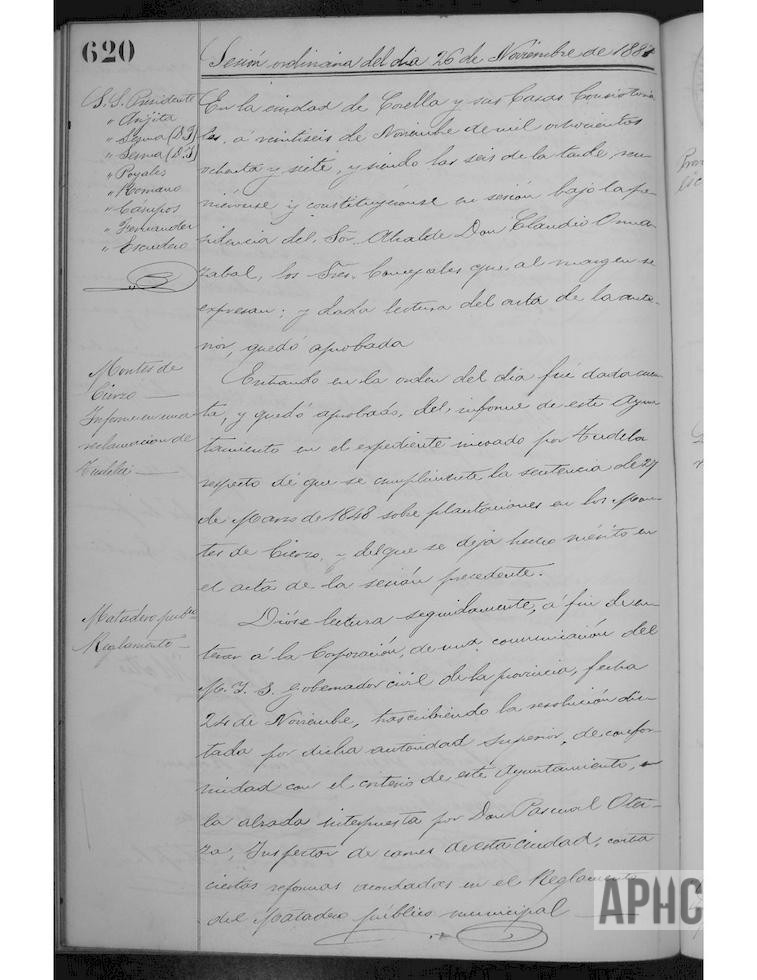 620
Sesión ordinaria del dia 26 de Noviembre de 1887
S. S. Presidente
" Arizta
" Serna (D. J)
" Serna (D. T)
" Poyales
" Romano
" Campos
" Fernandez
" Escudero
En la ciudad de Corella y sus Casas Consistoria
les, á veintiseis de Noviembre de mil ochocientos
ochenta y siete, y siendo las seis de la tarde, reu-
niéronse y constituyéronse en sesión bajo la pre-
sidencia del Sor. Alcalde Don Claudio Oma-
zabal, los Sres. Concejales que, al margen se
expresan; y dada lectura del acta de la ante-
rior, quedó aprobada
Montes de
Cierzo —
Informe en una
reclamacion de
Tudela —
Entrando en la orden del dia fué dada cuen-
ta, y quedó aprobado, del informe de este Ayun-
tamiento en el expediente incoado por Tudela
respecto de que se cumplimente la sentencia de 27
de Marzo de 1848 sobre plantaciones en los Mon-
tes de Cierzo, y del que se deja hecho mérito en
el acta de la sesión precedente.
Matadero pub.co
Reglamento —
Dióse lectura seguidamente, á fin de en-
terar á la Corporación, de una comunicación del
M. I. S. Gobernador civil de la provincia, fecha
24 de Noviembre, trascribiendo la resolución dic-
tada por dicha autoridad superior, de confor-
midad con el criterio de este Ayuntamiento, en
la alzada interpuesta por Don Pascual Otei-
za, Inspector de carnes de esta ciudad, contra
ciertas reformas acordadas en el Reglamento
del Matadero público municipal —
APHC